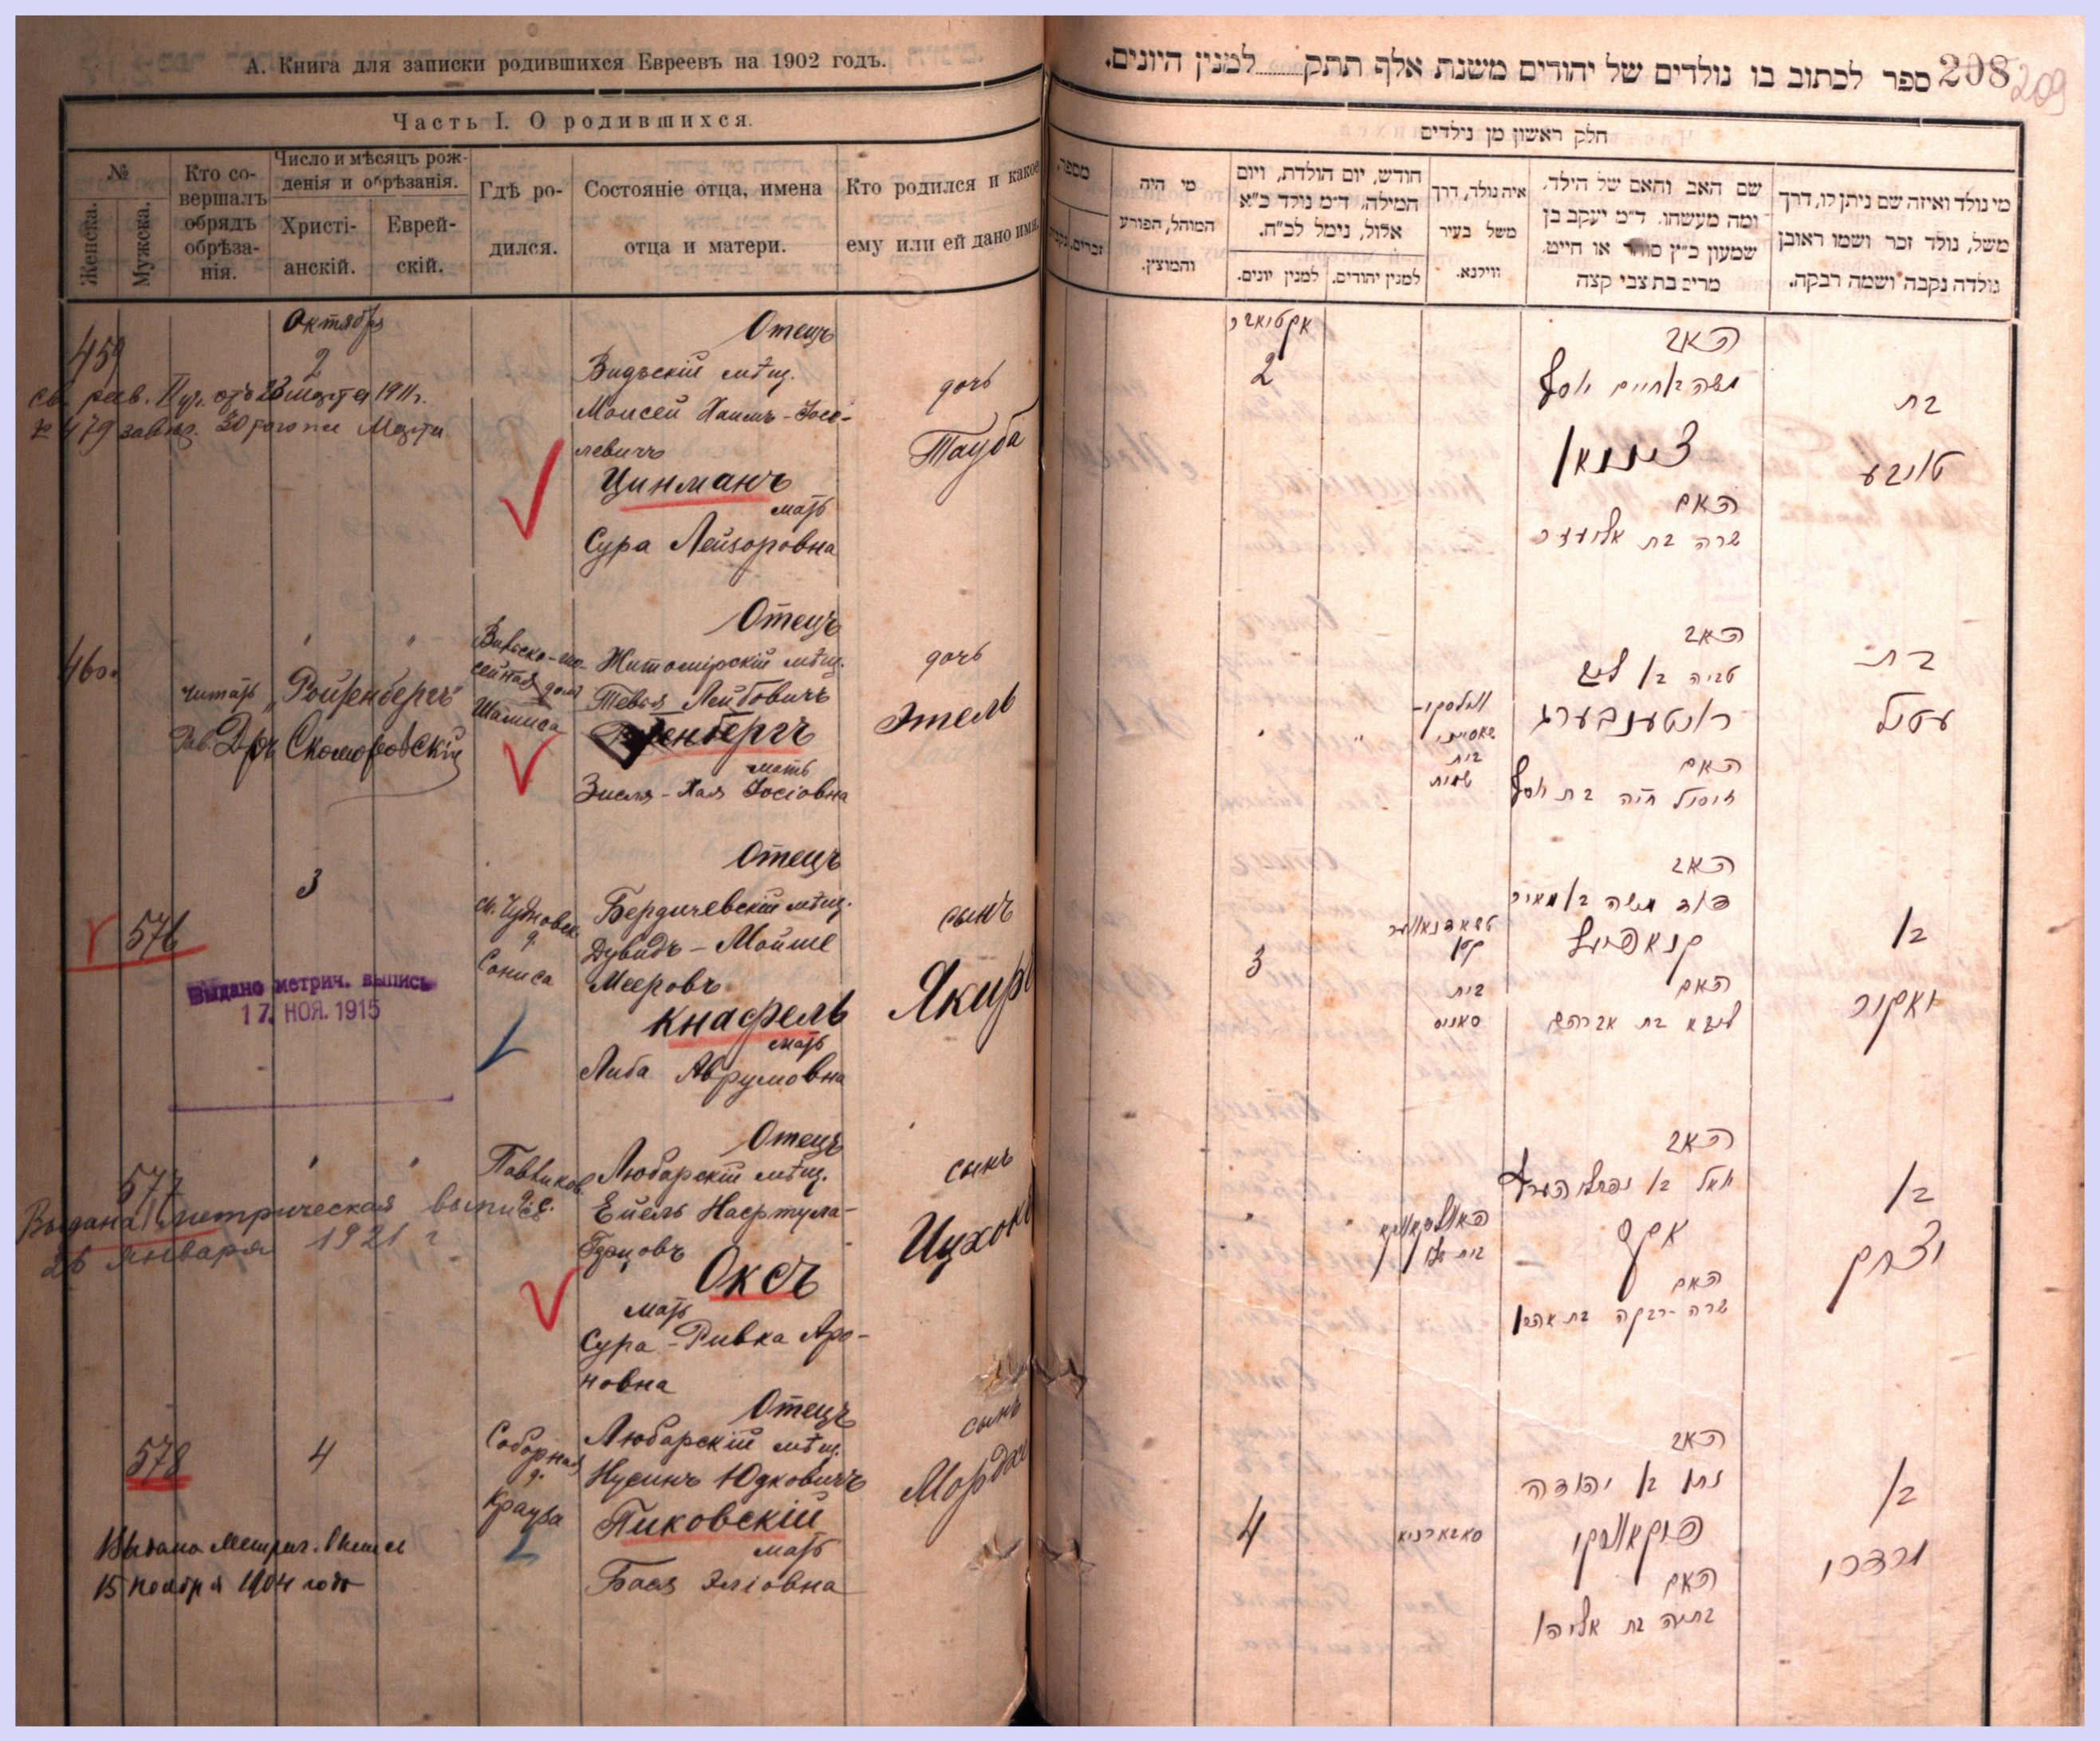 А. Книга для записки родившихся Евреевъ на 1902 годъ.
Часть I. О родившихся.
№
Женска.
Мужска.
Кто со-
вершалъ
обрядъ
обрѣза-
нія.
Число и мѣсяцъ рож-
денія и обрѣзанія.
Христі-
анскій.
Еврей-
скій.
Гдѣ ро-
дился.
Состояніе отца, имена
отца и матери.
Кто родился и какое
ему или ей дано имя.
Октября
459
2
Отецъ
мѣщ.
Моисей Хаимъ-Іосе-
левичъ
Цинманъ
мать
Сура Лейзоровна
дочь
Тауба
460.
Отецъ
Житомірскій мѣщ.
Тевья Лейбовичъ
енбергъ
мать
Зисля-Хая Іосіовна
дочь
Этель
читать „Ройтенбергъ"
Рав. Д-ръ Скоморовскій
576
3
Отецъ
Бердичевскій мѣщ.
Дувидъ-Мойше
Мееровъ
Кнафель
мать
Либа Аврумовна
сынъ
Якиръ
Выдано метрич. выпись
17. НОЯ. 1915
577
Отецъ
Любарскій мѣщ.
Ейель
Оксъ
мать
Сура-Ривка Аро-
новна
сынъ
Ицхокъ
Выдана метрическая выпись
26 января 1921 г
578
4
Соборная
д.
Крауза
Отецъ
Любарскій мѣщ.
Нусинъ Юдковичъ
Пиковскій
мать
Бася Эліовна
сынъ
Мордхе
Выдана Метрич. выпись
15 ноября 1904 года
208
209
ספר לכתוב בו נולדים של יהודים משנת אלף תתק למנין היונים.
חלק ראשון מן נילדים
מי נולד ואיזה שם ניתן לו, דרך
משל, נולד זכר ושמו ראובן
נולדה נקבה ושמה רבקה.
שם האב והאם של הילד.
ומה מעשהו. ד״מ יעקב בן
שמעון כ״ץ סוחר או חייט.
מרים בת צבי קצה
איה נולד, דרך
משל בעיר
ווילנא.
חודש, יום הולדת, ויום
המילה. ד״מ נולד כ״א
אלול, נימל לכ״ח.
למנין יהודים.
למנין יונים.
מי היה
המוהל, הפורע
והמוצץ.
מספר.
זכרים.
אקטיאבר
2
האב
משה חיים יוסף
צינמאן
האם
שרה בת אליעזר
בת
טויבע
האב
טביה בן ליב
רויטענבערג
האם
זיסל חיה בת יוסף
בת
עטיל
3
האב
דוד משה בן מאיר
קנאפיעל
האם
ליבא בת אברהם
בית
סאניס
בן
יאקיר
האב
יואל בן נפתלי הערץ
אקס
האם
שרה-רבקה בת אהרן
בן
יצחק
4
האב
נתן בן יהודה
פיקאווסקי
האם
בתיה בת אליהו
סאבארניא
בן
מרדכי